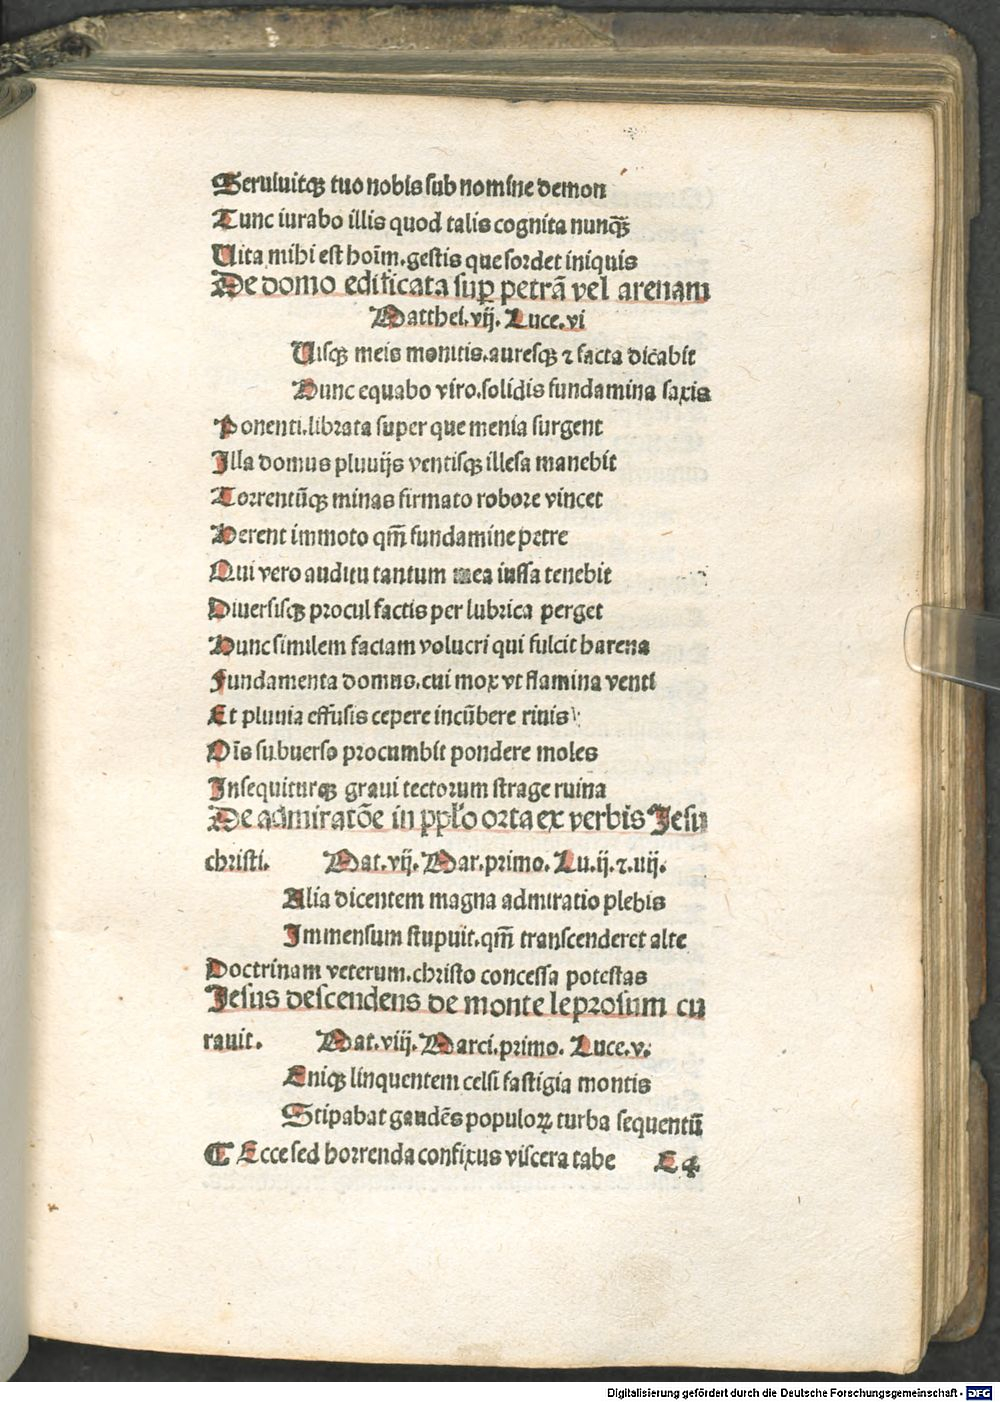 Seruiuitqꝫ tuo nobis sub nomine demon
Tunc iurabo illis quod talis cognita nunqꝫ̃
Uita mihi est hoīm.gestis que sordet iniquis
De domo edificata suꝑ petrā vel arenam
Matthei.vij. Luce.vi
Uisqꝫ meis monitis.auresqꝫ ⁊ facta dicabit
Hunc equabo viro.solidis fundamina saxis
Ponenti.librata super que menia surgent
Illa domus pluuijs ventisqꝫ illesa manebit
Torrentūqꝫ minas firmato robore vincet
Herent immoto qm̄ fundamine petre
Qui vero auditu tantum mea iussa tenebit
Diuersisqꝫ procul factis per lubrica perget
Hunc similem factam volucri qui fulcit harena
Fundamenta domus.cui mox vt flamina venti
Et pluuia effusis cepere incūbere riuis
Oīs subuerso procumbit pondere moles
Insequiturqꝫ graui tectorum strage ruina
De admiratōe in ppl̄o orta ex verbis Jesu
christi. Mat.vij. Mar.primo. Lu.ij.⁊.iiij.
Alia dicentem magna admiratio plebis
Immensum stupuit.qm̄ transcenderet alte
Doctrinam veterum.christo concessa potestas
Jesus descendens de monte leprosum cu
rauit. Mat.viij. Marci.primo. Luce.v.
Eniqꝫ linquentem celsi fastigia montis
Stipabat gaudēs populoꝝ turba sequentū
¶ Ecce sed horrenda confixus viscera tabe E 4
Digitalisierung gefördert durch die Deutsche Forschungsgemeinschaft - DFG